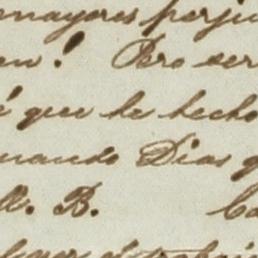 mayores perju
en! Pero ser
é que he hecho
nando Dias q
B.